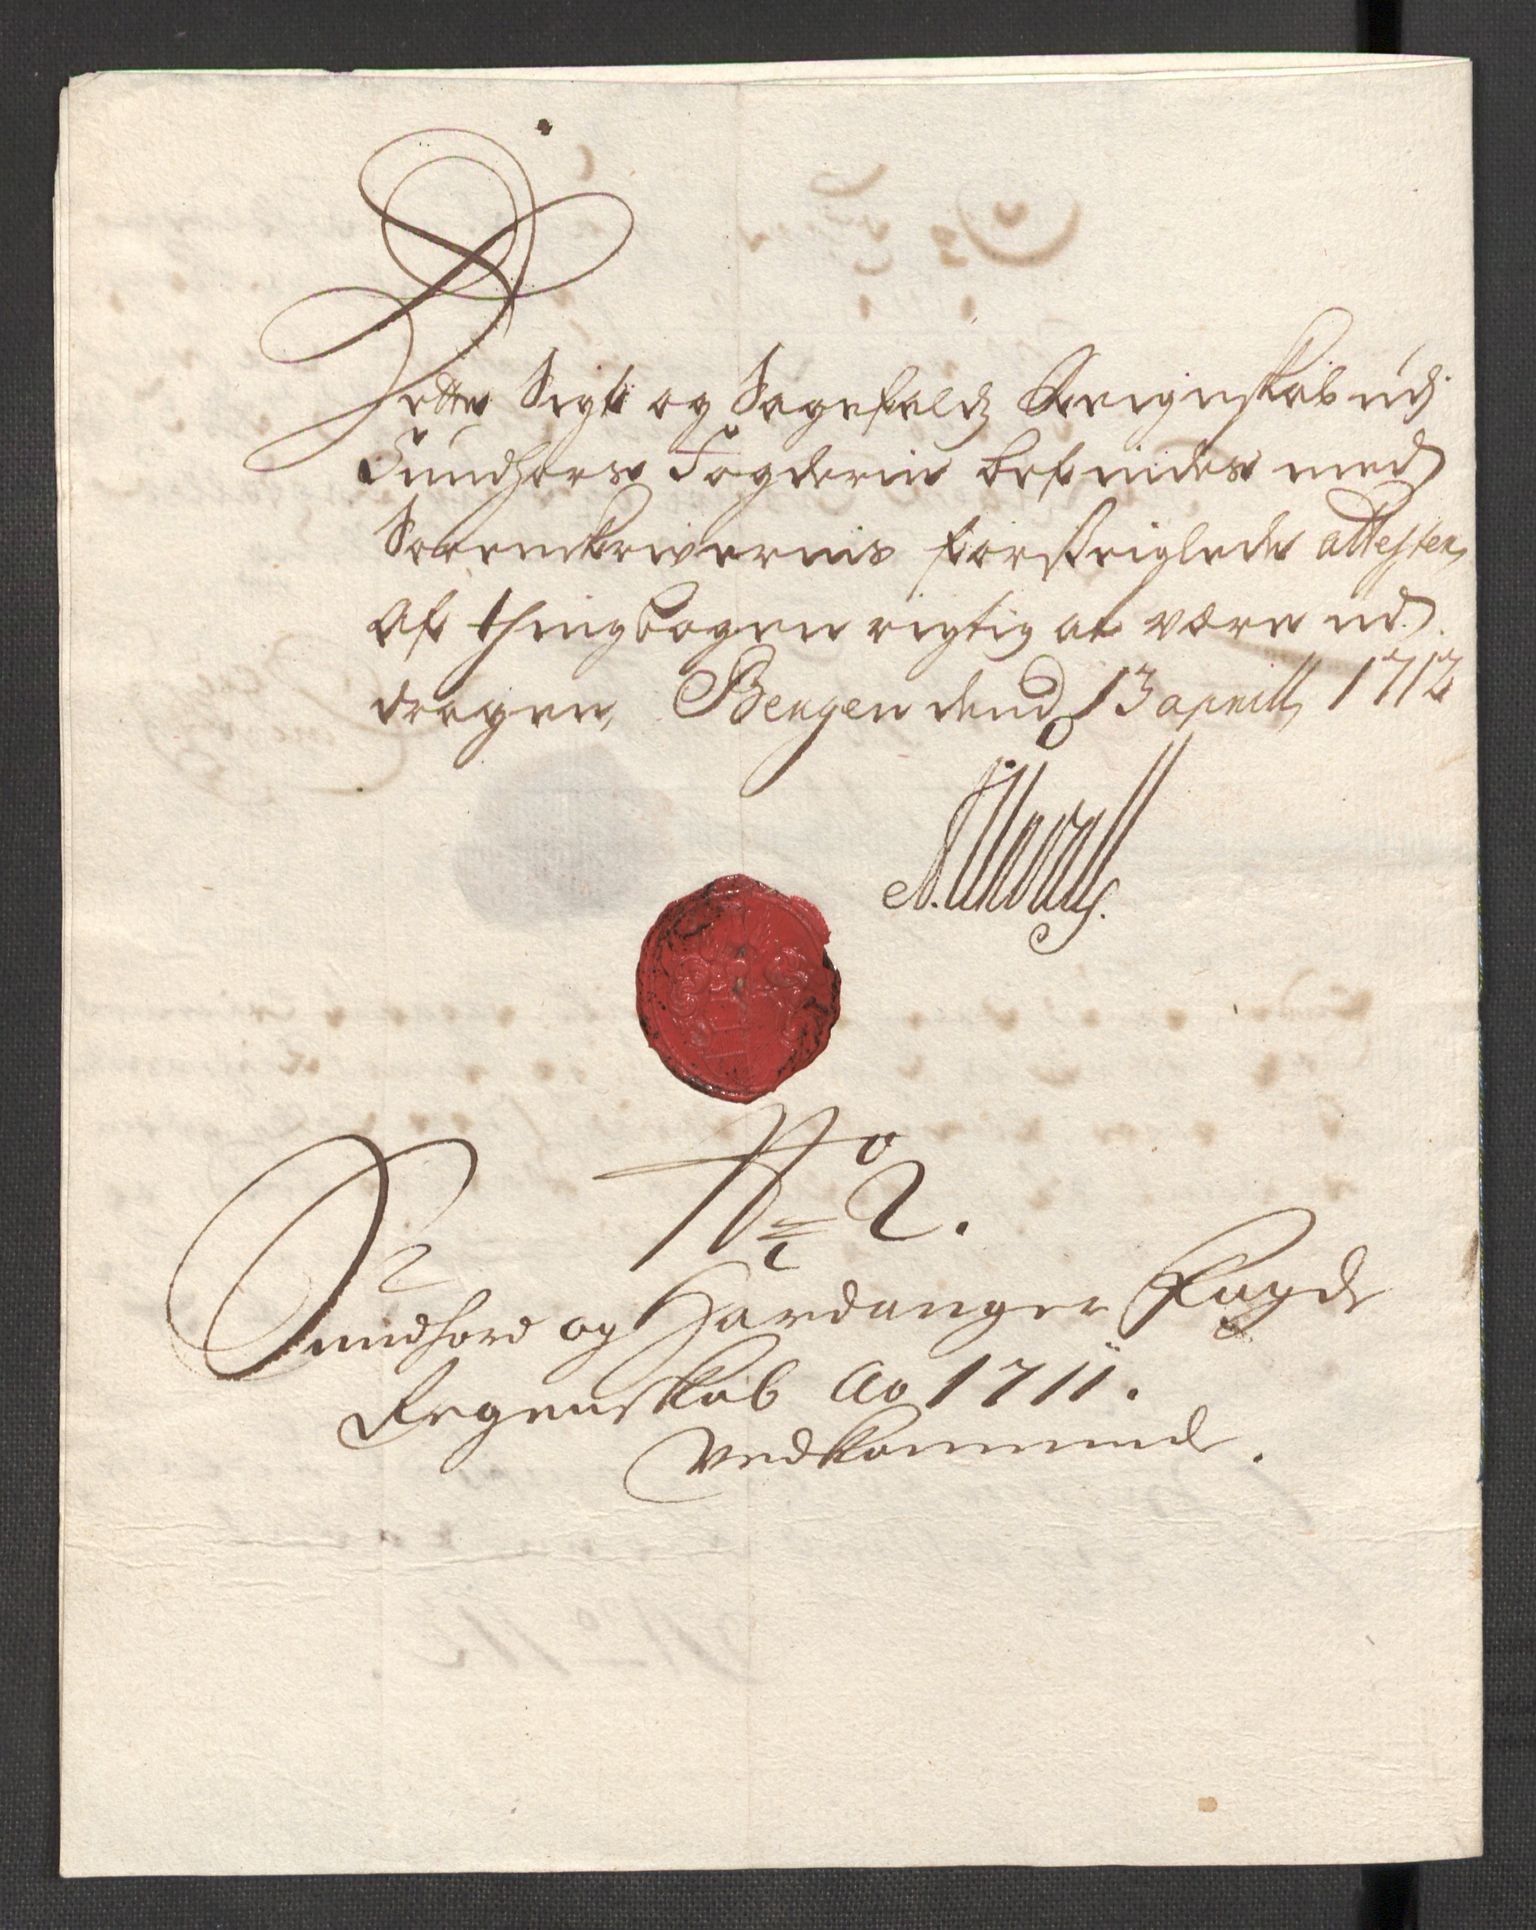 Dette Sigt og Sagefalds Reignskab udj
Sundhors Fogderie befindes med
Sorenskrivernis forseiglede attester,
af thingbogen rigtig at være ud
dragen, Bergen dend 13 aprill, 1712
No 2.
Sundhord og Hardanger Fogde
Regenskab Ao 1711.
Vedkommende.